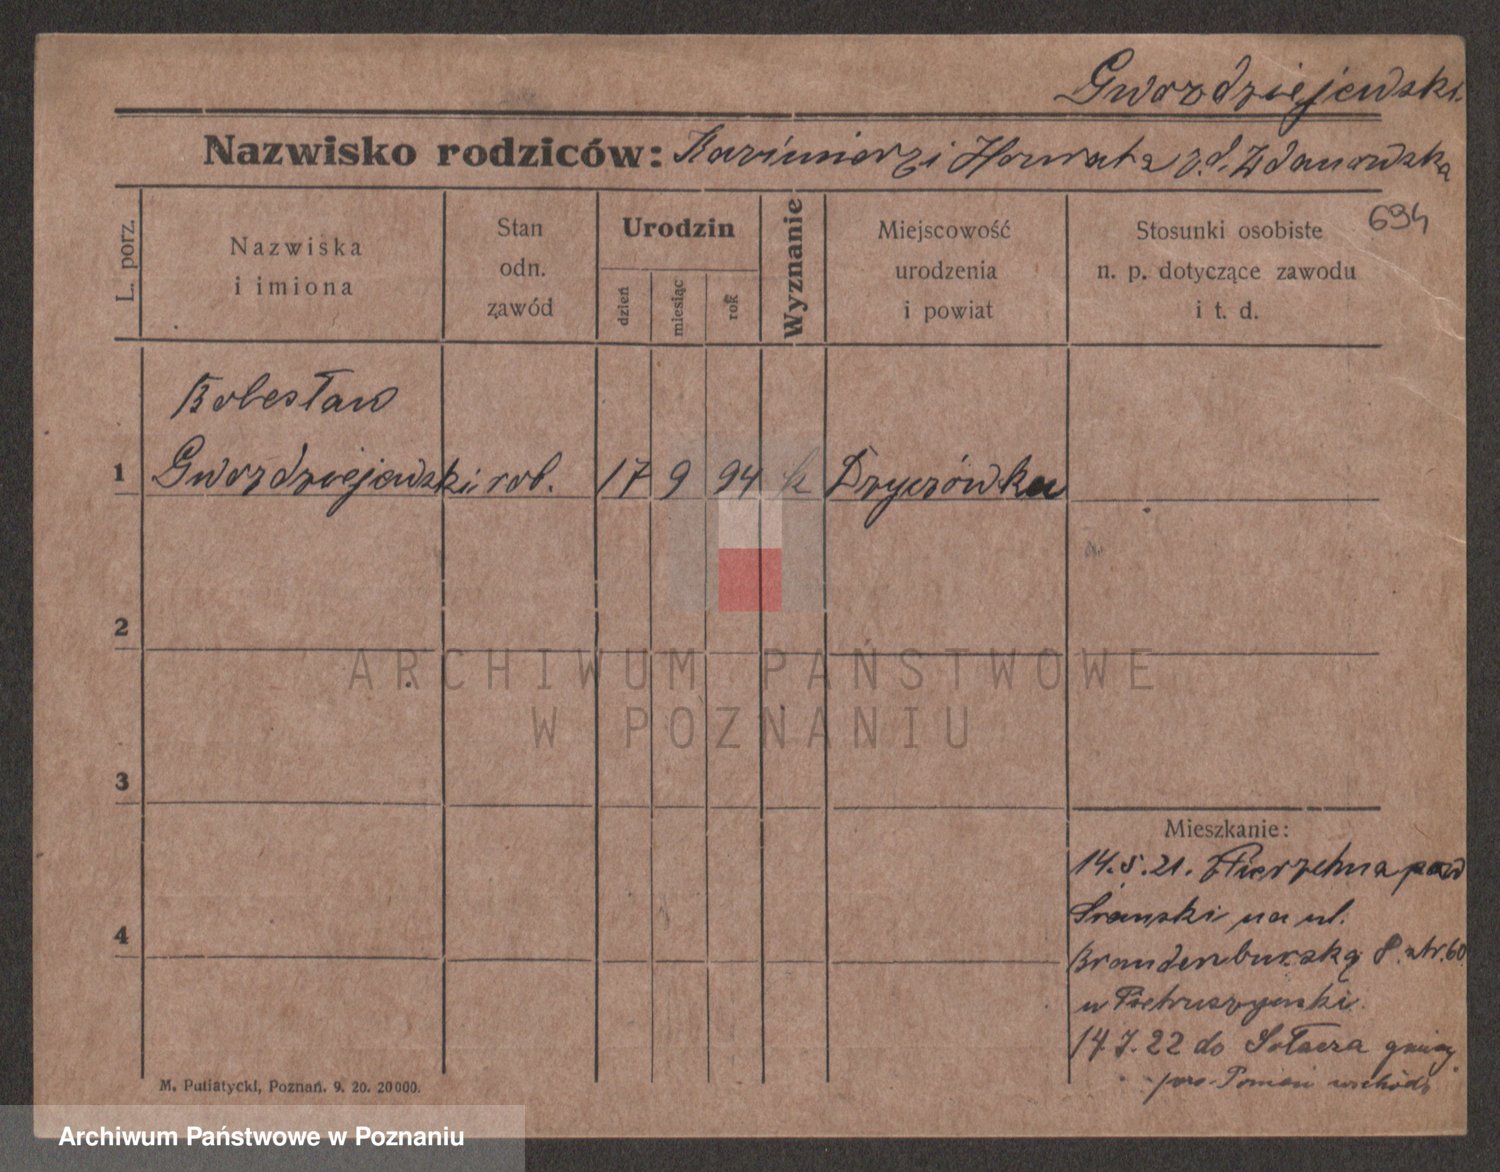 Gwozdziejewski.
Nazwisko rodziców: Kazimierz i Honorata z d. Zdanowska
694
L. porz.
Nazwiska
i imiona
Stan
odn.
zawód
Urodzin
dzień
miesiąc
rok
Wyznanie
Miejscowość
urodzenia
i powiat
Stosunki osobiste
n. p. dotyczące zawodu
i t. d.
Bolesław
1 Gwozdziejewski rob. 17 9 94 k
2
ARCHIWUM PAŃSTWOWE
W POZNANIU
3
Mieszkanie:
14.5.21. pow
4
Śremski na ul.
Brandenburską 8. str. 60
u Pietruszyński.
14.7.22 do Sołacza gminy
wschód
M. Putiatycki, Poznań. 9. 20. 20000.
Archiwum Państwowe w Poznaniu